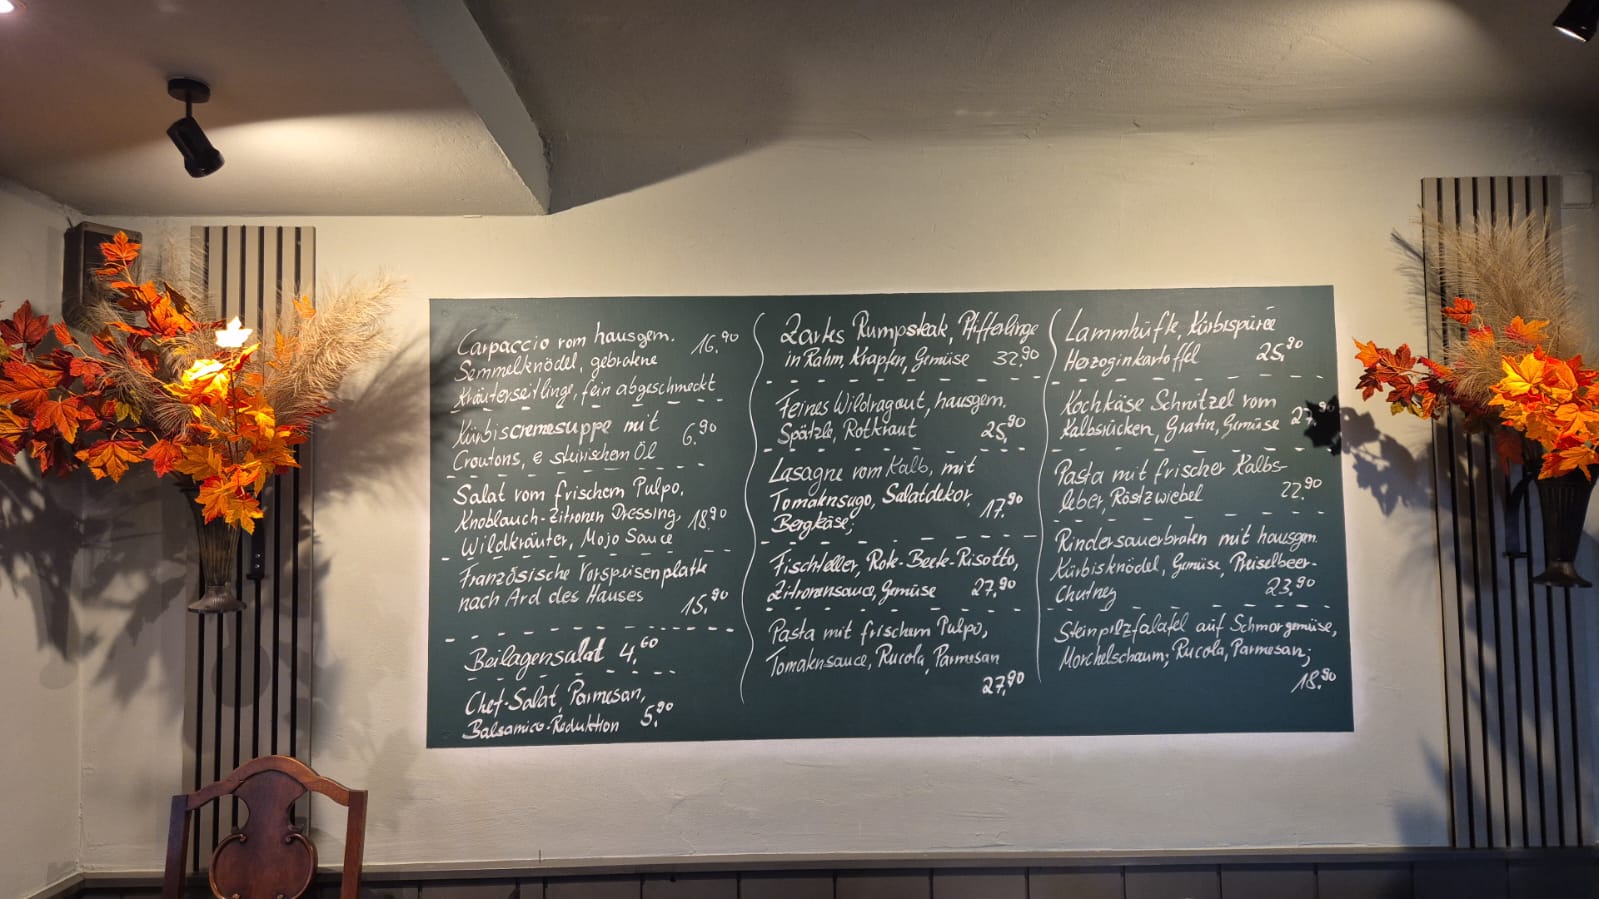 Carpaccio vom hausgem. 16,90
Semmelknödel, gebratene
Kräuterseitlinge, fein abgeschmeckt
Kürbiscremesuppe mit
Croutons, & steirischem Öl 6,90
Salat vom frischem Pulpo,
Knoblauch-Zitronen Dressing,
Wildkräuter, Mojo Sauce 18,90
Französische Vorspeisenplatte
nach Ard des Hauses 15,90
Beilagensalat 4,60
Chef-Salat, Parmesan,
Balsamico-Reduktion 5,90
Zartes Rumpsteak, Pfifferlinge
in Rahm, Krapfen, Gemüse 32,90
Feines Wildragout, hausgem.
Spätzle, Rotkraut 25,90
Lasagne vom Kalb, mit
Tomatensugo, Salatdekor,
Bergkäse; 17,90
Fischteller, Rote-Beete-Risotto,
Zitronensauce, Gemüse 27,90
Pasta mit frischem Pulpo,
Tomatensauce, Rucola, Parmesan
27,90
Lammhüfte, Kürbispüree
Herzoginkartoffel 25,90
Kochkäse Schnitzel vom
Kalbsrücken, Gratin, Gemüse
Pasta mit frischer Kalbs-
leber, Röstzwiebel 22,90
Rindersauerbraten mit hausgem.
Kürbisknödel, Gemüse, Preiselbeer-
Chutney 23,90
Steinpilzfalafel auf Schmorgemüse,
Morchelschaum; Rucola, Parmesan;
18,90